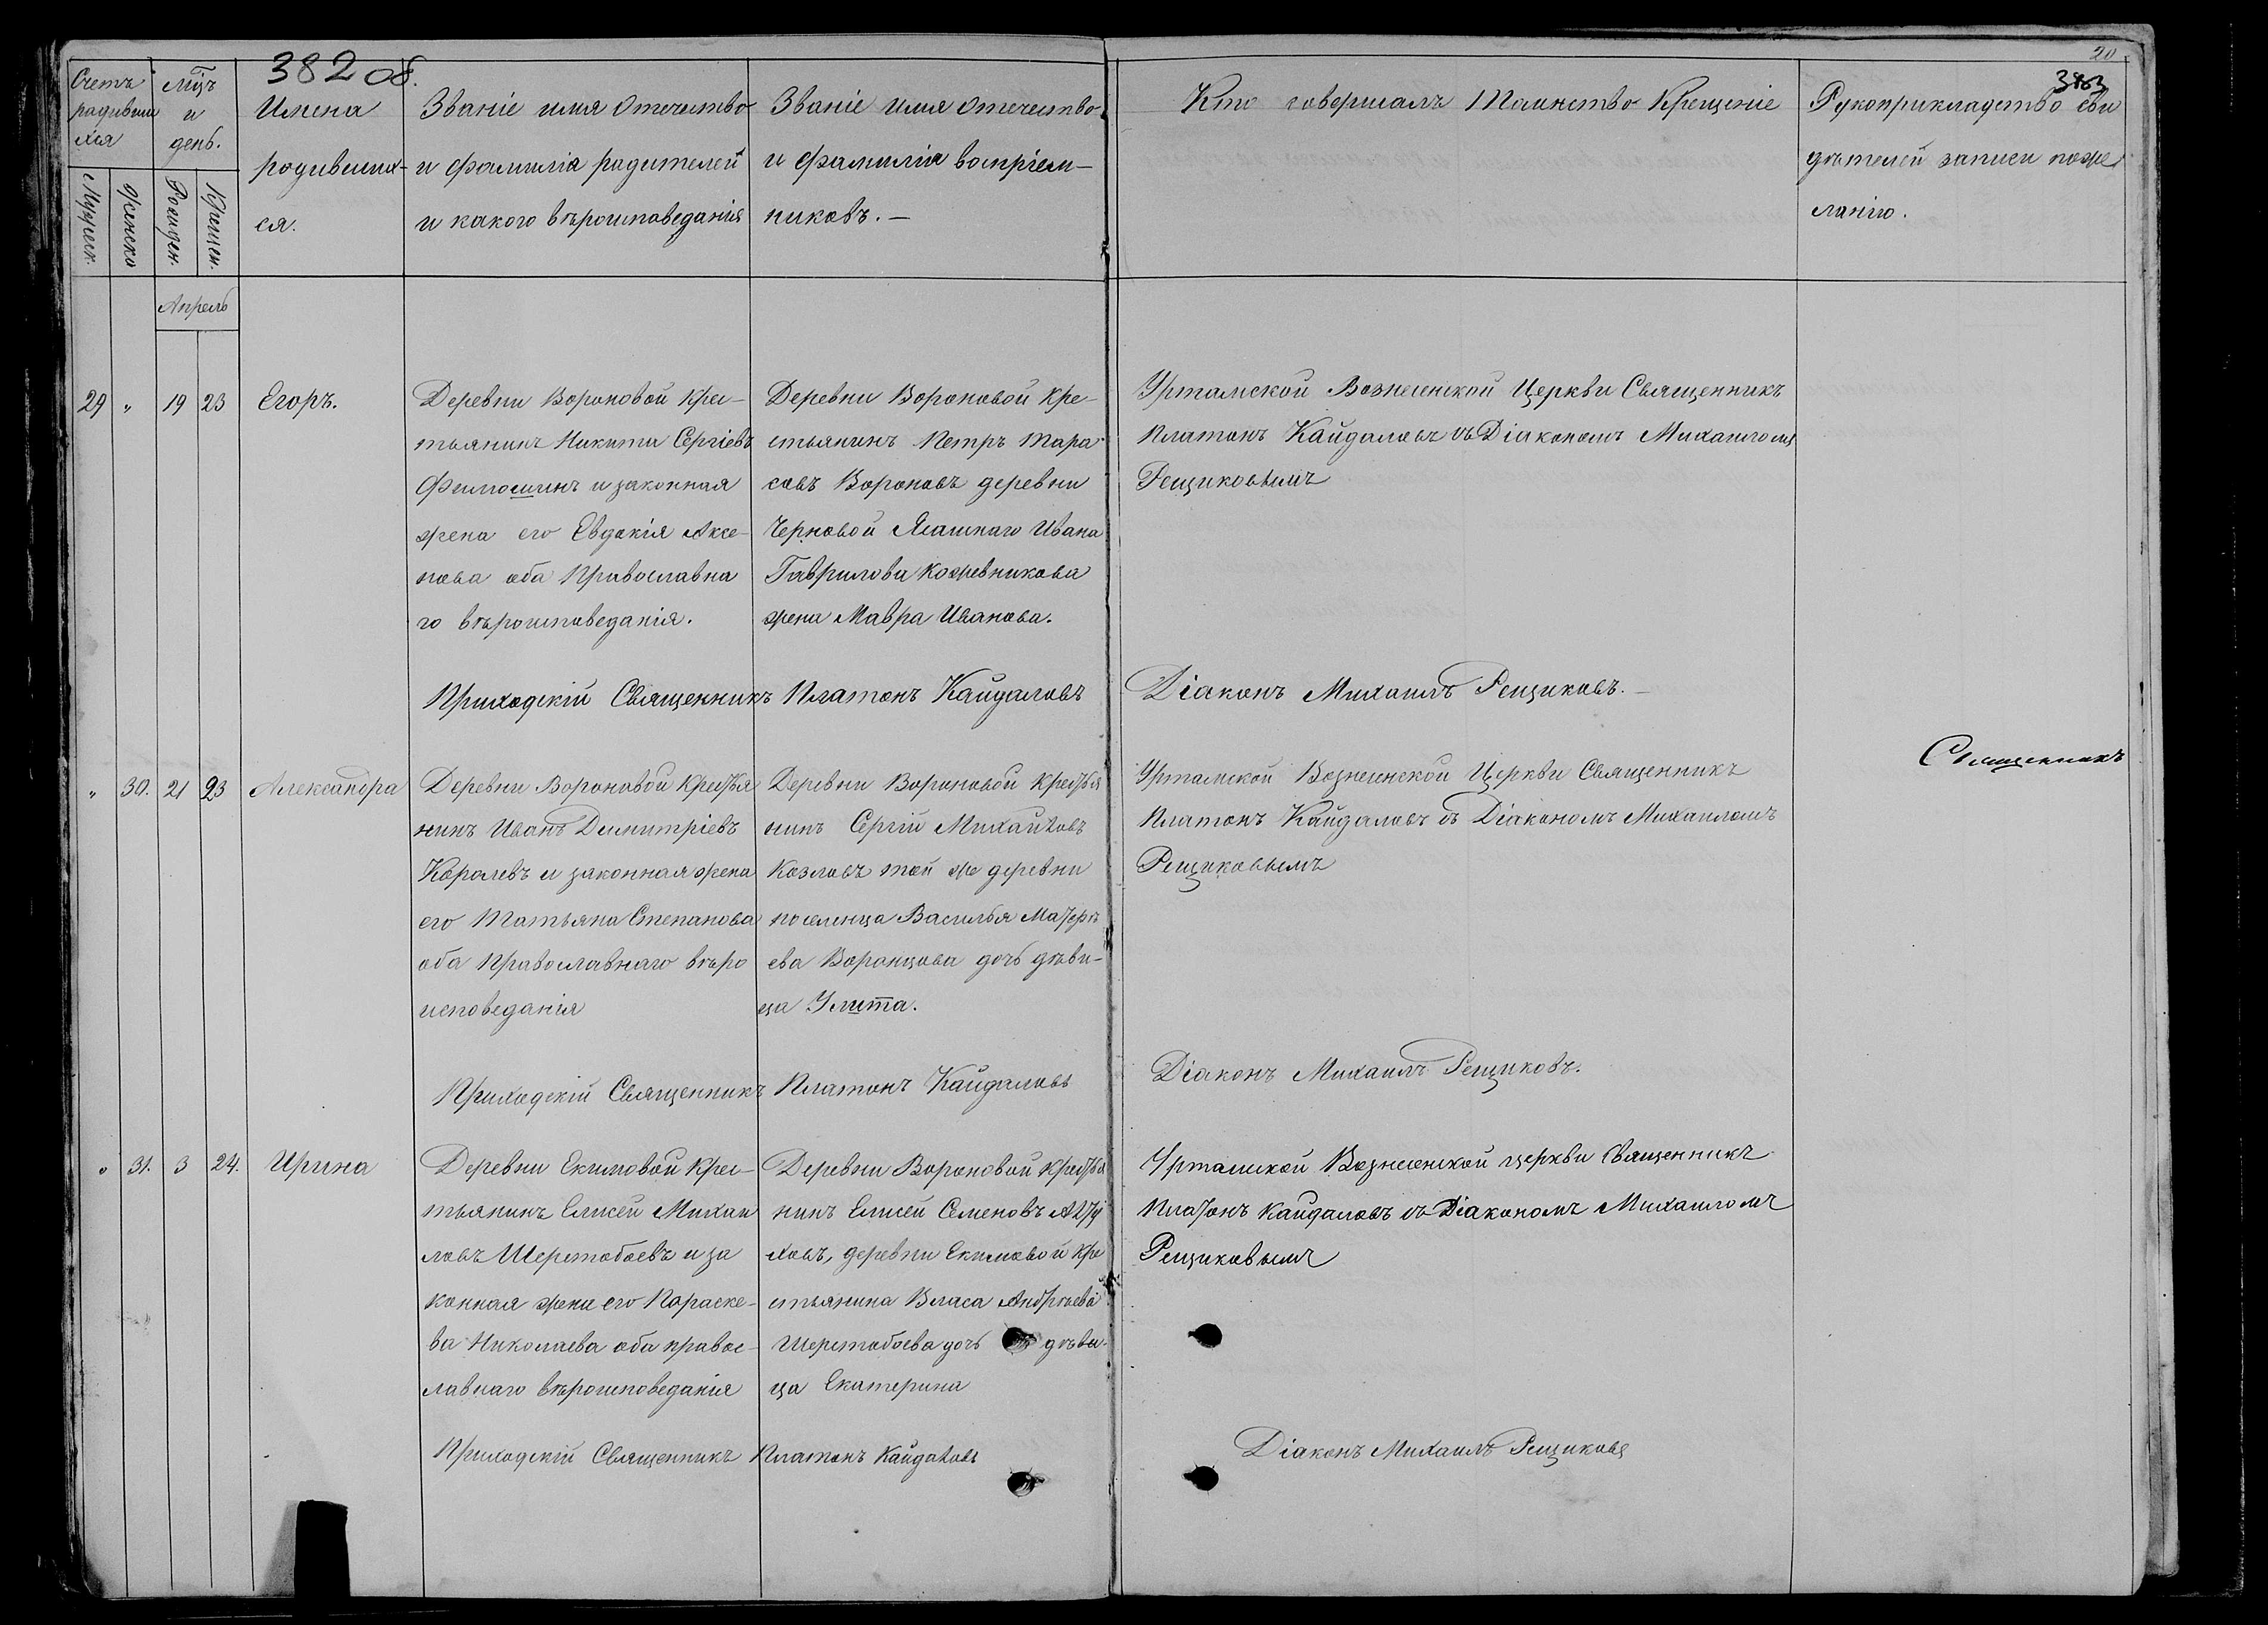 382 об.
20
383
Счетъ
родивши
хся
Мужеск.
Женско
Мцъ
и
день.
Рожден.
Крещен.
Имена
родивших-
ся.
Званіе имя Отечество
и Фамилія родителей
и какого вѣроисповеданія
Званіе имя Отечество
и Фамилія воспріем-
никовъ. —
Кто совершалъ Таинство Крещеніе
Рукоприкладство сви
дѣтелей записи поже
ланію.
Апрель
29 " 19 23 Егоръ.
Деревни Вороновой Крес-
тьянинъ Никита Сергіевъ
Филюшинъ и законная
жена его Евдокія Аксе-
нова оба Православна
го вѣроисповеданія.
Деревни Вороновой Кре-
стьянинъ Петръ Тара
совъ Вороновъ деревни
Черновой Ясашнаго Ивана
Гаврилова Кожевникова
жена Мавра Иванова.
Уртамской Вознесенской Церкви Священникъ
Платонъ Кайдаловъ съ Діакономъ Михаиломъ
Рещиковымъ
Приходскій Священникъ Платонъ Кайдаловъ
Діаконъ Михаилъ Рещиковъ. —
Священникъ
" 30. 21 23 Александра
Деревни Вороновой Крестья
нинъ Иванъ Димитріевъ
Королевъ и законная жена
его Татьяна Степанова
оба Православнаго вѣро
исповеданія
Деревни Вороновой Крестья
нинъ Сергій Михайловъ
Козловъ той же деревни
поселенца Василья Матвѣ
ева Воронцова дочь дѣви-
ца Улита.
Уртамской Вознесенской Церкви Священникъ
Платонъ Кайдаловъ съ Діакономъ Михаиломъ
Рещиковымъ
Приходскій Священникъ Платонъ Кайдаловъ
Діаконъ Михаилъ Рещиковъ.
" 31. 3 24. Ирина
Деревни Екимовой Крес-
тьянинъ Елисей Михаи
ловъ Шерстобоевъ и за
конная жена его Параске-
ва Николаева оба правос-
лавнаго вѣроисповеданія
Деревни Вороновой Крестья
нинъ Елисей Семеновъ
ховъ, деревни Екимовой Кре
стьянина Власа Андрѣева
Шерстобоева дочь дѣви-
ца Екатерина
Уртамской Вознесенской церкви Священникъ
Платонъ Кайдаловъ съ Діакономъ Михаиломъ
Рещиковымъ
Приходскій Священникъ Платонъ Кайдаловъ
Діаконъ Михаилъ Рещиковъ